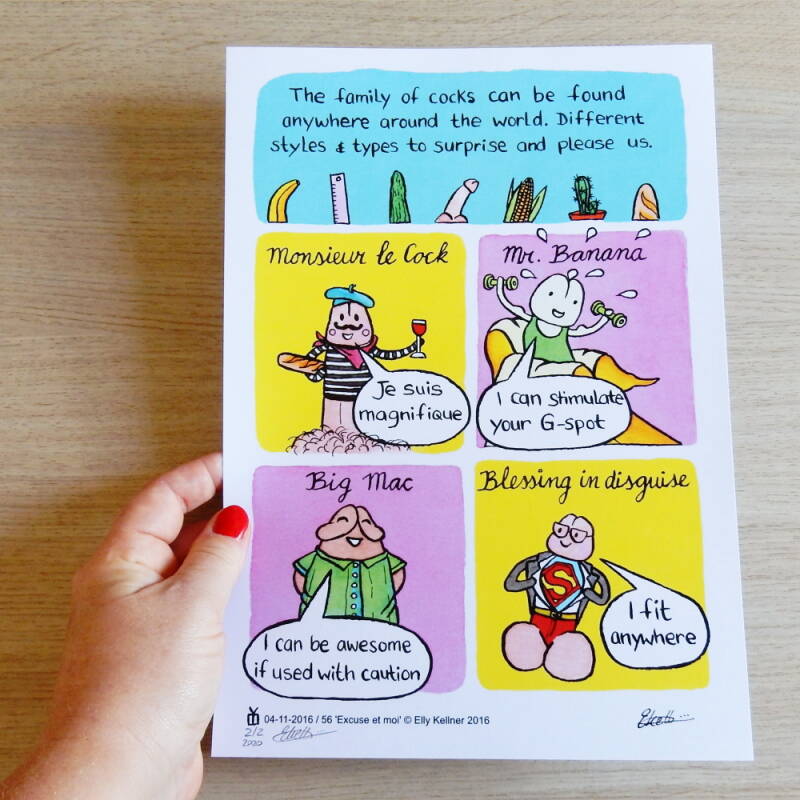 The family of cocks can be found
anywhere around the world. Different
styles & types to surprise and please us.
Monsieur le Cock
Je suis
magnifique
Mr. Banana
I can stimulate
your G-spot
Big Mac
I can be awesome
if used with caution
Blessing in disguise
S
I fit
anywhere
04-11-2016 / 56 'Excuse et moi' © Elly Kellner 2016
2/2
2020